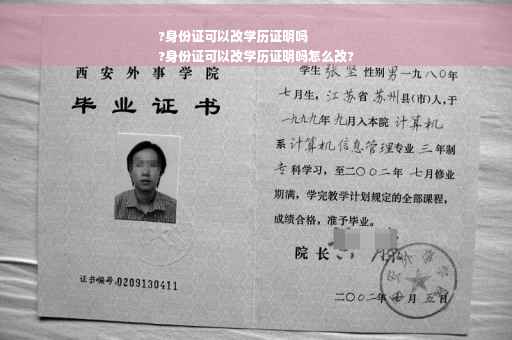 ?身份证可以改学历证明吗
?身份证可以改学历证明吗怎么改?
西安外事学院
毕业证书
证书编号:0209130411
学生 张坚 性别 男 一九八〇年
七月生, 江苏省 苏州县(市)人,于
一九九九年九月入本院 计算机
系 计算机信息管理专业 三 年制
专科学习,至二〇〇二年 七月修业
期满,学完教学计划规定的全部课程,
成绩合格,准予毕业。
院长
二〇〇二年 月五日